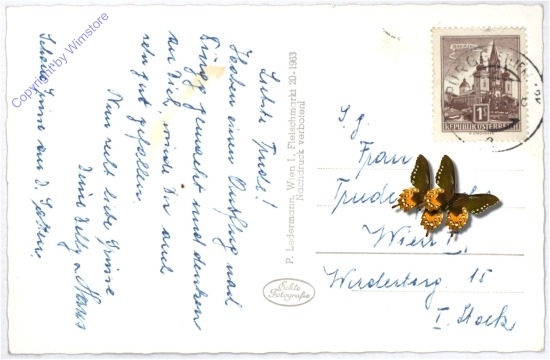 Copyright by Wimstore
Liebste Trude!
Haben einen Ausflug nach
gemacht und denken
an Dich, würde Dir auch
sehr gut gefallen.
Nun recht liebe Grüsse
Deine Helly u Hans
Schöne Grüsse an d.
P. Ledermann, Wien I, Fleischmarkt 20-1963
Nachdruck verboten!
Echte
Fotografie
REPUBLIK ÖSTERREICH
1S
S. g.
Frau
Trude
Wien I.
Werdertorg. 15
I. Stock